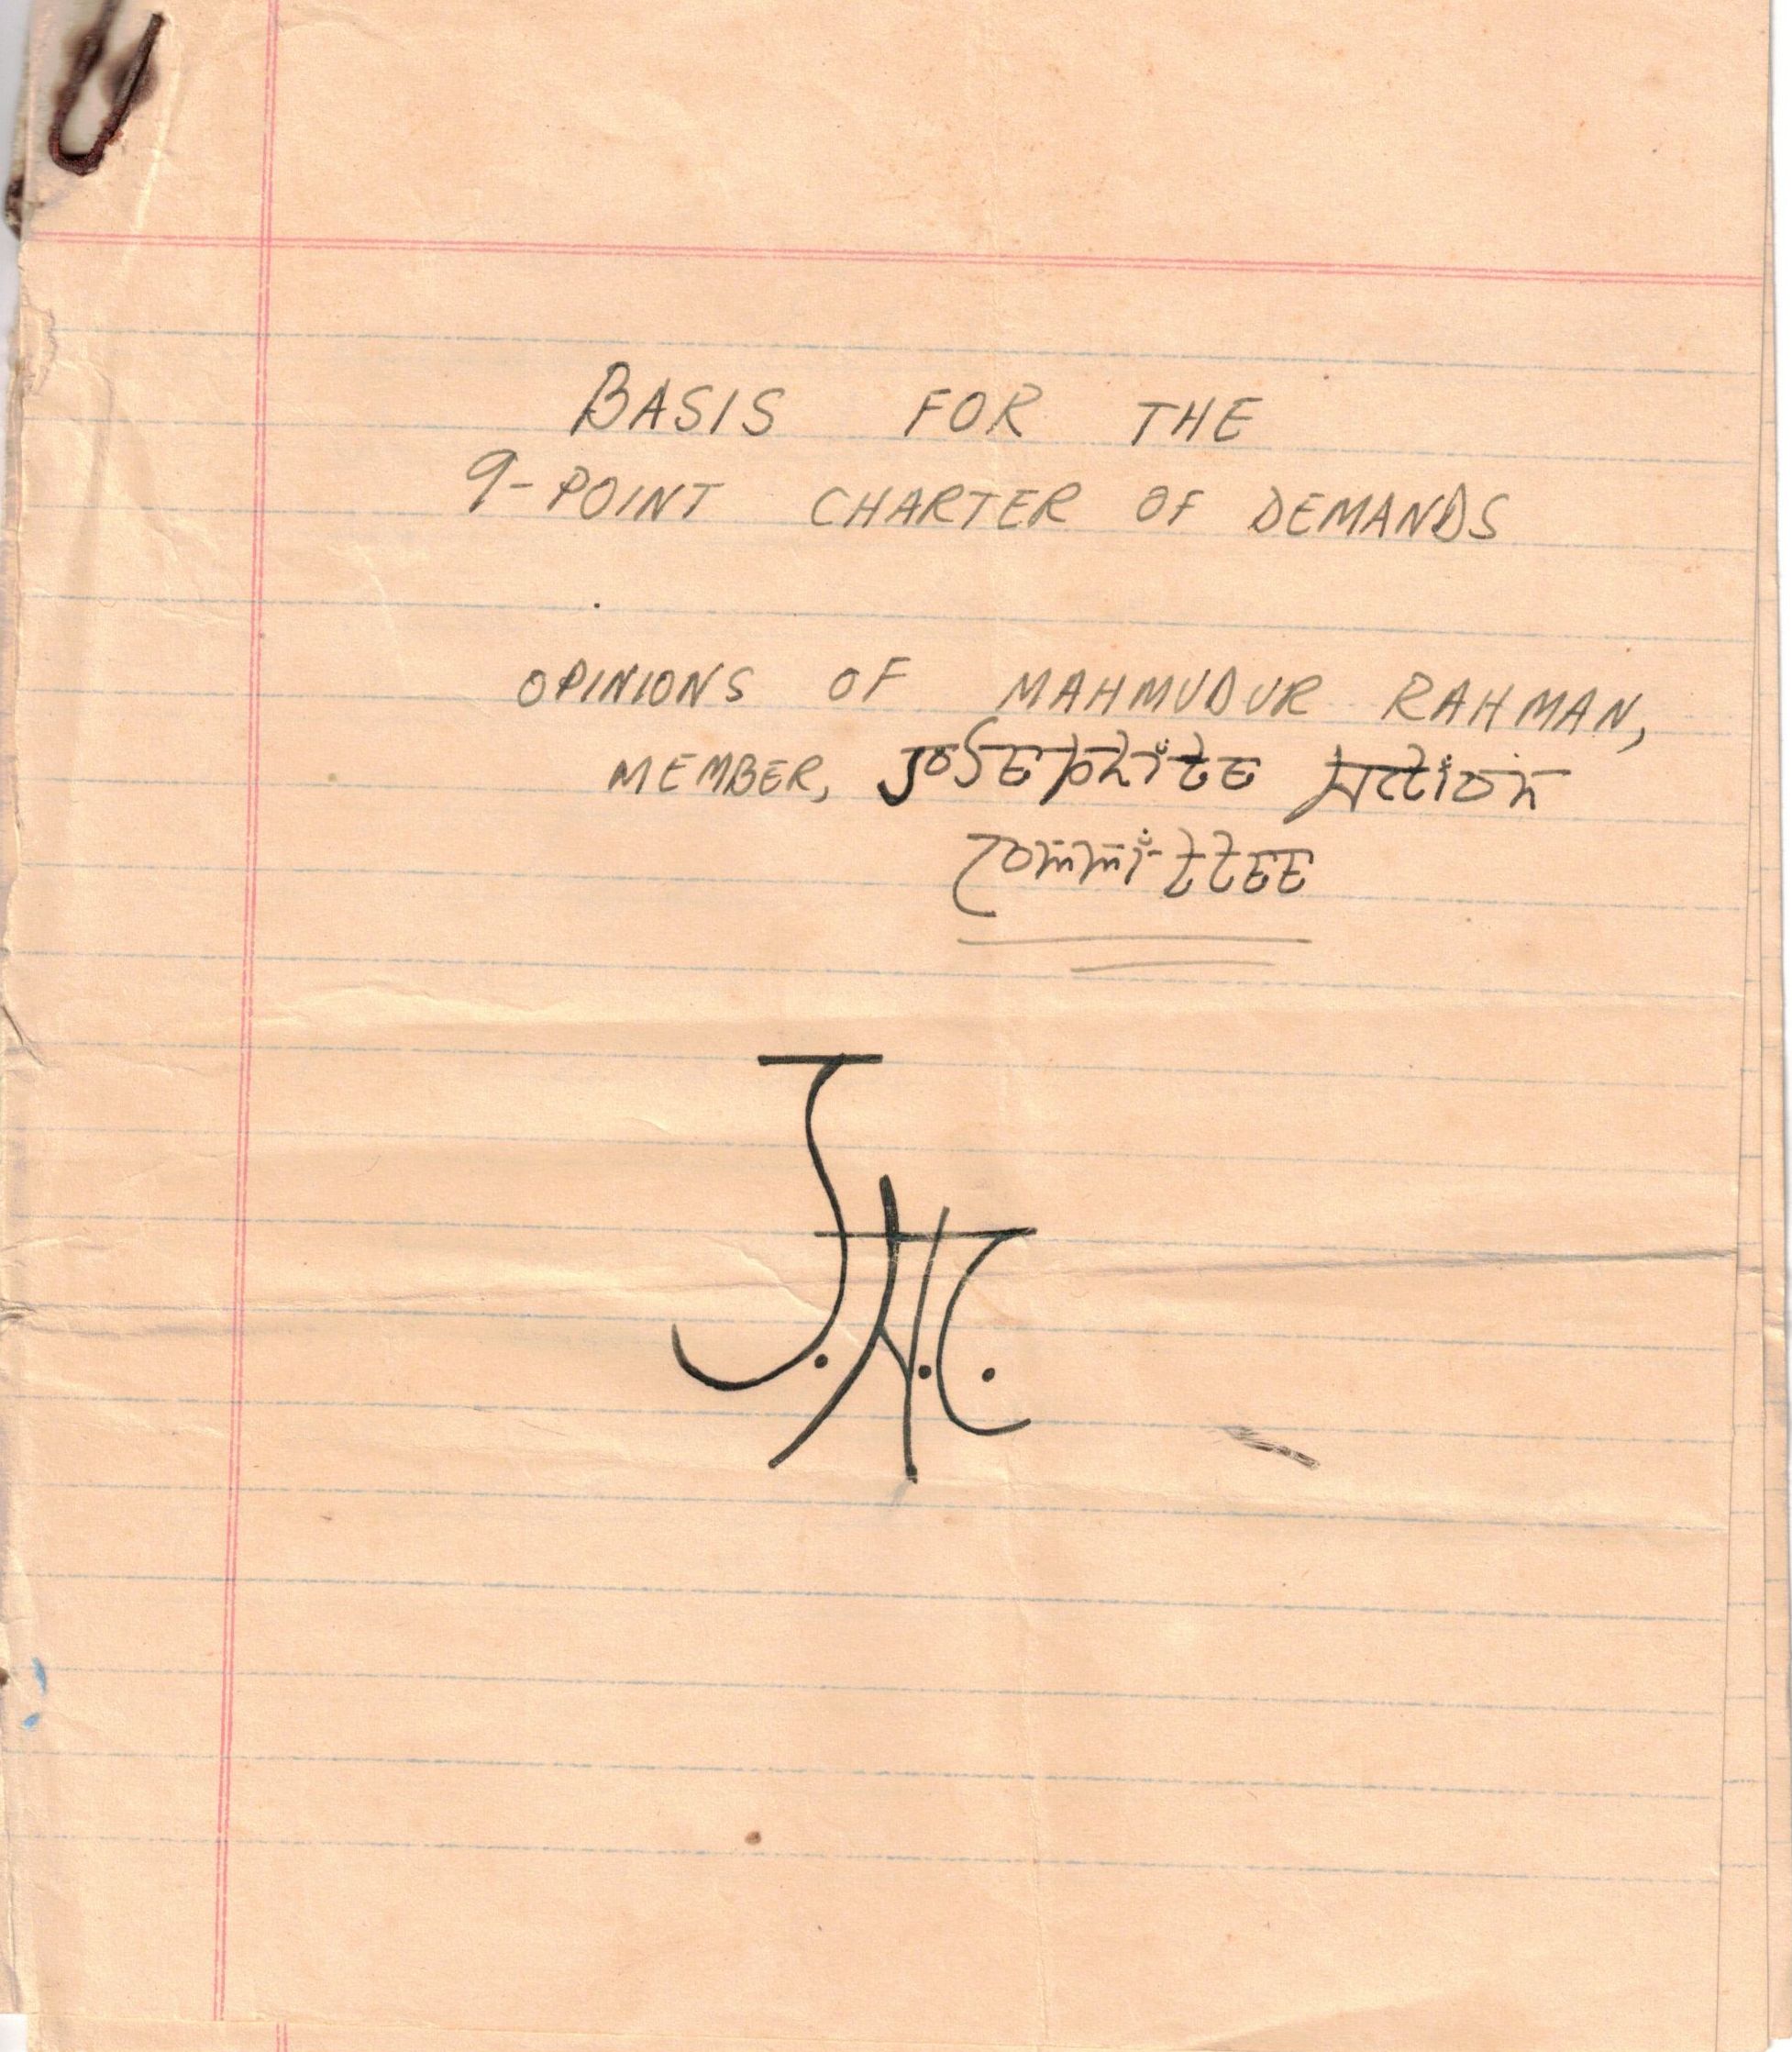 BASIS FOR THE
9-POINT CHARTER OF DEMANDS
OPINIONS OF MAHMUDUR RAHMAN,
MEMBER, JOSEPhiTE ACTION
COMMiTTEE
J.A.C.